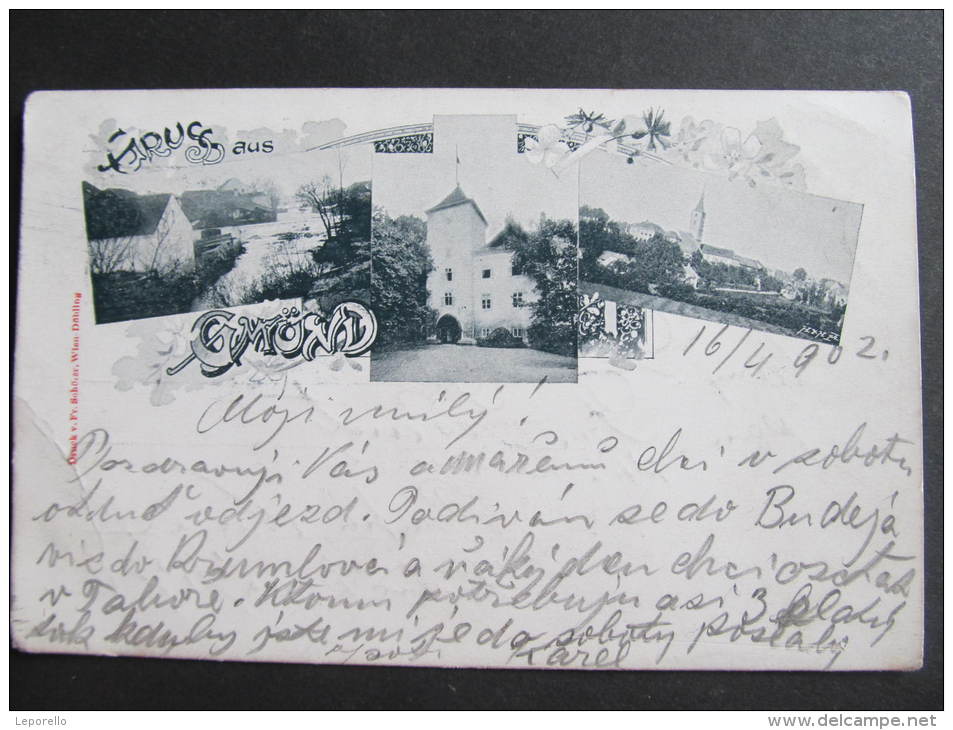 GRUSS aus
GMÜND
Druck v. Fr. Schöler, Wien-Döbling
16/4 902.
Moji milý!
Pozdravuji Vás a chci v sobotu
odtud odjezd. Podívám se do Budějo
vic do Krumlova a náký den chci ostat
v Táboře. K tomu potřebuju asi 3 zlatý
tak kdyby jste mi je do soboty poslaly
Karel
Leporello
www.delcampe.net